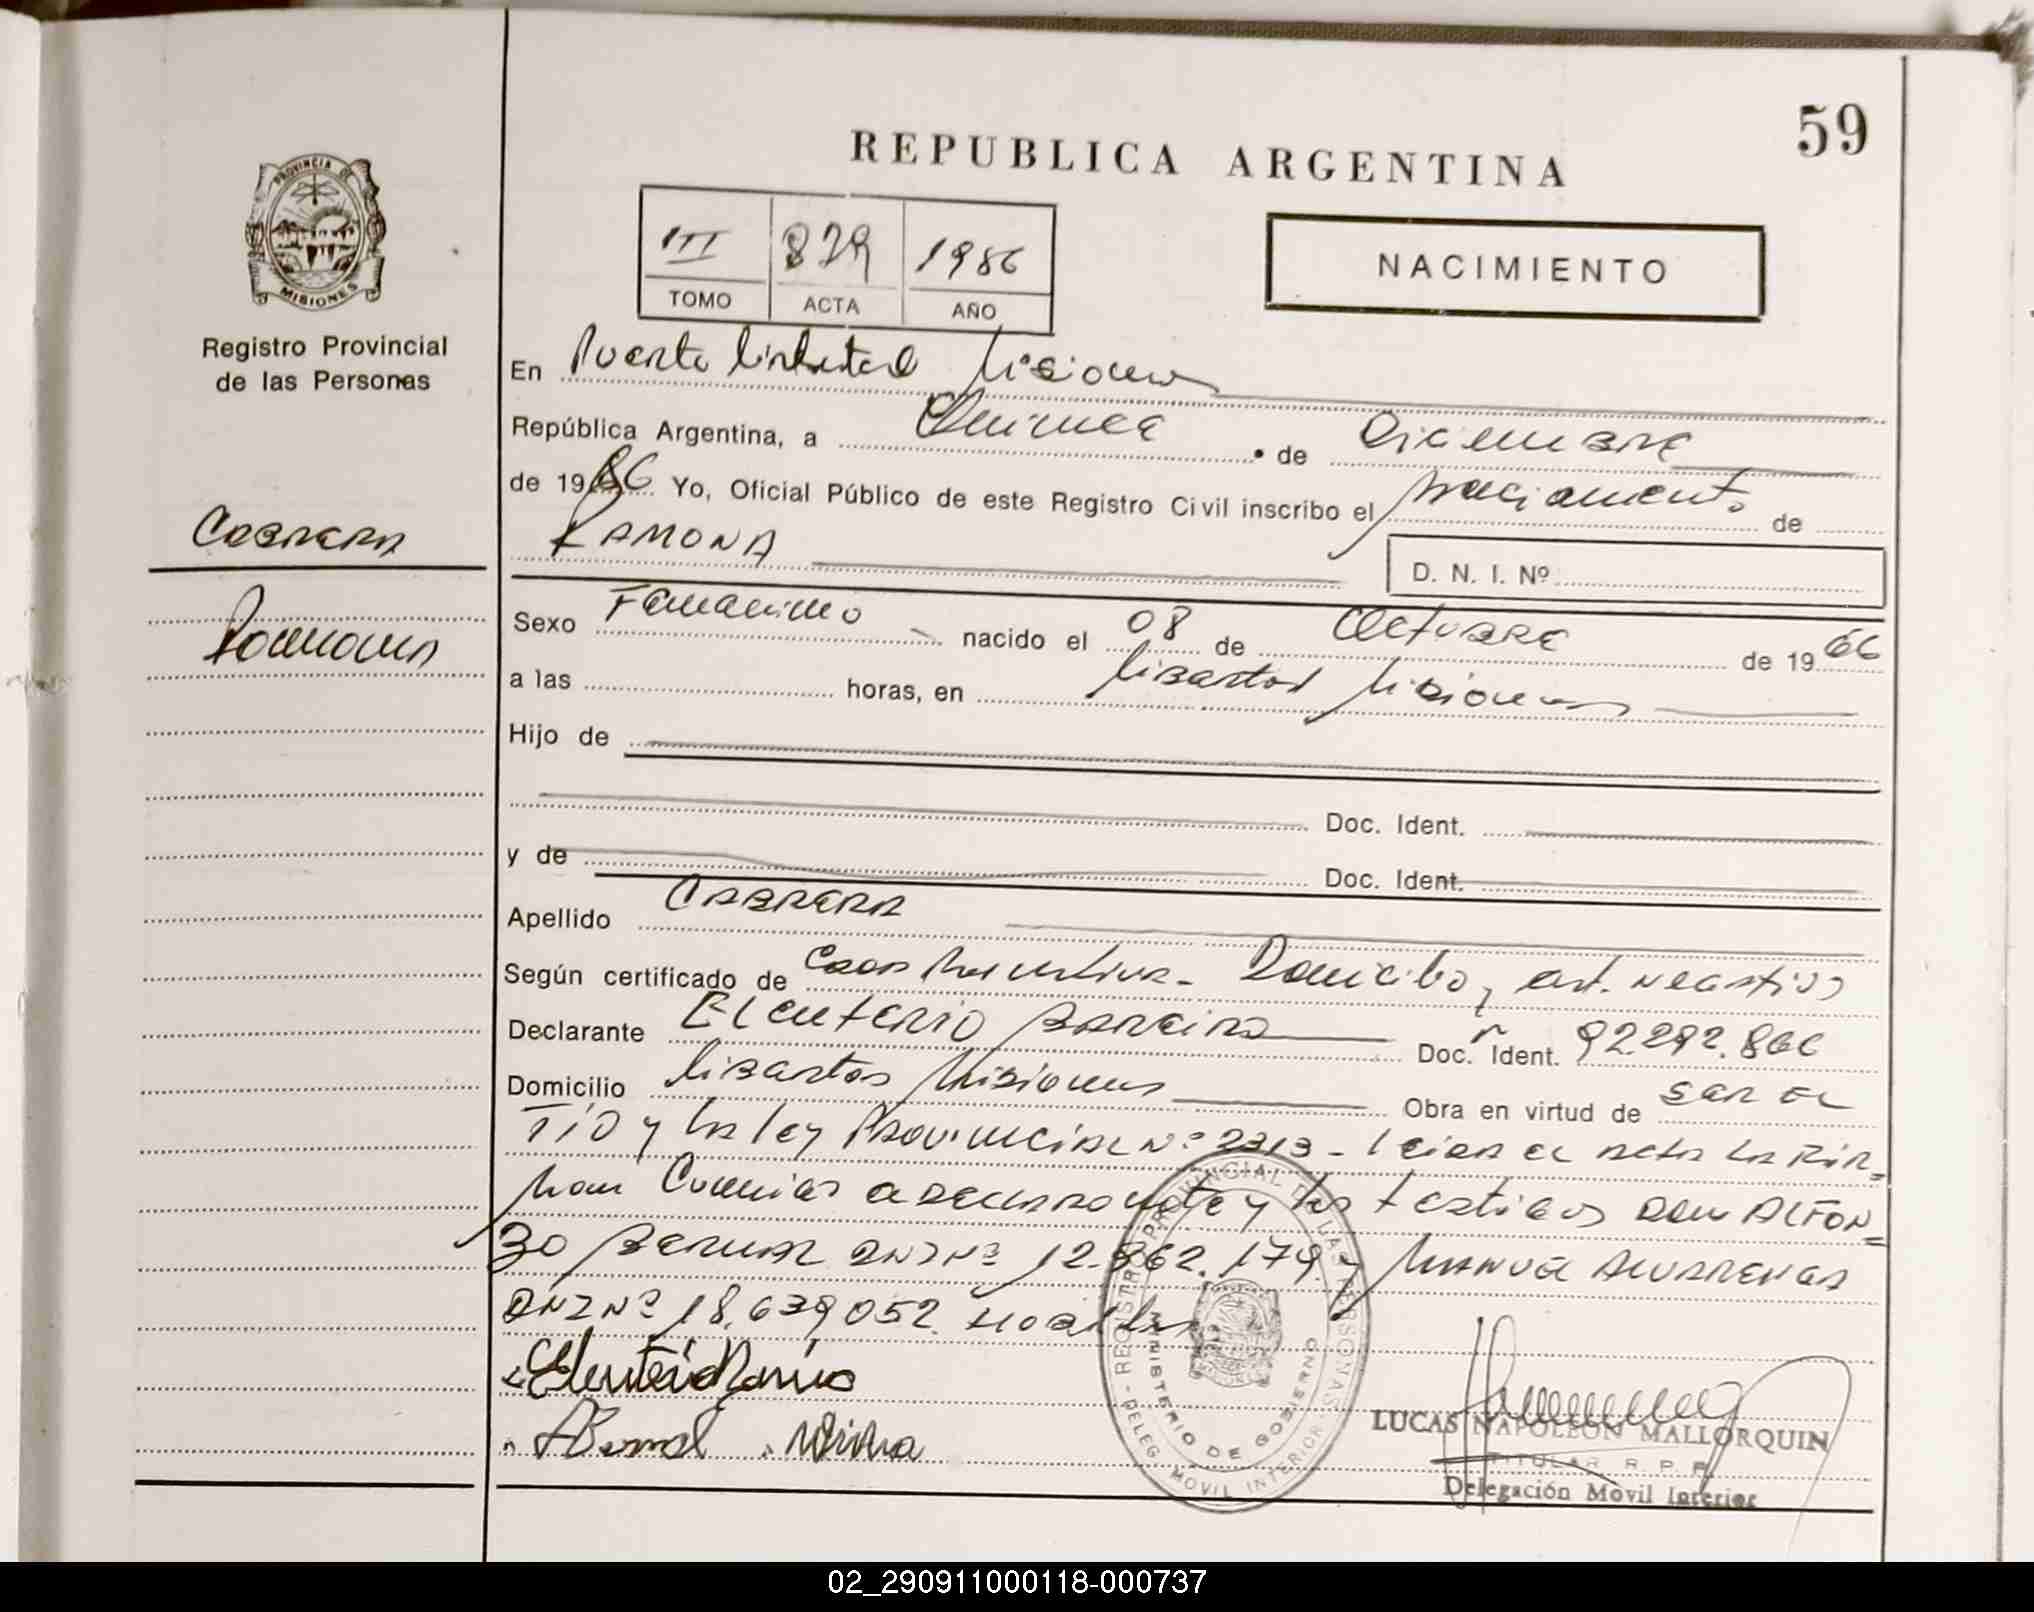 59
REPUBLICA ARGENTINA
PROVINCIA DE
MISIONES
III 829 1986
TOMO ACTA AÑO
NACIMIENTO
Registro Provincial
de las Personas
En Puerto Libertad Misiones
República Argentina, a Quince de Diciembre
de 1986 Yo, Oficial Público de este Registro Civil inscribo el nacimiento de
RAMONA
D. N. I. Nº
Cabrera
Ramona
Sexo Femenino nacido el 08 de Octubre de 1966
a las horas, en Libertad Misiones
Hijo de
Doc. Ident.
y de Doc. Ident.
Apellido Cabrera
Según certificado de Domicilio, cert. negativo
Declarante Eleuterio Doc. Ident. 92.292.866
Domicilio Libertad Misiones Obra en virtud de ser el
Tío y la ley Provincial Nº 2313 - leida el acta la fir=
man conmigo el declarante y los testigos don Alfon=
zo Bernal DNI Nº 12.862.179 y
DNI Nº 18.639.052.
REGISTRO PROVINCIAL DE LAS PERSONAS
MINISTERIO DE GOBIERNO
DELEG. MOVIL INTERIOR
ABernal
LUCAS NAPOLEON MALLORQUIN
TITULAR R. P. P.
Delegación Móvil Interior
02_290911000118-000737